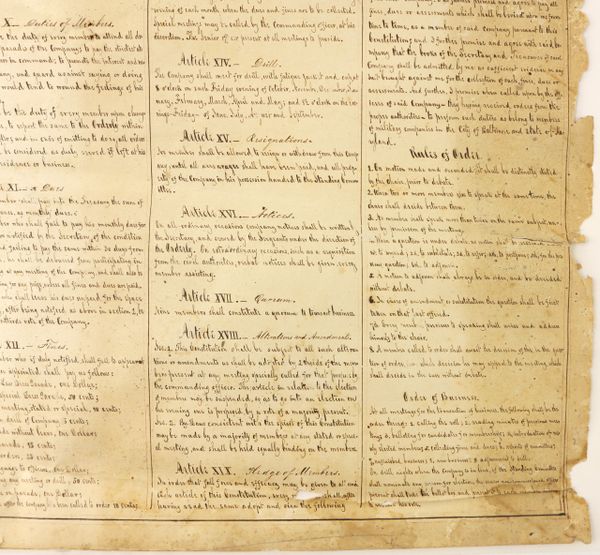 X.— Duties of Members.
the duty of every member to attend all do
parades of the Company; to pay the strictest at
his commands; to promote the interest and
and guard against saying or doing
would tend to wound the feelings of his
be his duty of every member upon change
to report the same to the Orderly within
be considered as duly served if left at his
residence or business.
XI.— Dues
shall pay into the Treasury the sum of
as monthly dues.
who shall fail to pay his monthly dues for
notified by the Secretary, of the condition
failing to pay the same within 30 days from
shall be debarred from participating in
at any meeting of the Company, and shall also
until all fines and dues are paid.
who shall leave his dues unpaid for the space
after being notified as above in section 2,
the Company.
XII.— Fines.
member who if duly notified, shall fail to appear
appointed shall pay as follows:
Dress Parade, One Dollar;
Special Dress Parade, 50 cents;
meeting, stated or special, 10 cents;
drill of Company 5 cents;
without leave, One Dollar;
parade, 12 cents;
orders, 25 cents;
to Officer, One Dollar;
any meeting or drill, 50 cents;
on parade, One Dollar;
after the Company has been called to order 10 cents;
evening of each month when the dues and fines are to be collected.
Special meetings may be called by the Commanding Officer, at his
discretion. The Senior Officer present at all meetings to preside.
Article XIV.— Drill.
The Company shall meet for drill, with fatigue jacket and cap, at
8 o'clock on each Friday evening of October, November, December, Jan-
uary, February, March, April and May; and 8½ o'clock on the eve-
nings Friday of June, July, August and September.
Article XV.— Resignations.
No member shall be allowed to resign or withdraw from this Com-
pany, until all arrearages shall have been paid, and all prop-
erty of the Company in his possession handed to the Standing Com-
mittee.
Article XVI.— Notices.
On all ordinary occasions company notices shall be written by
the Secretary, and served by the Sergeants under the direction of
the Orderly. On extraordinary occasions, such as a requisition
from the civil authorities, verbal notices shall be given, every
member assisting.
Article XVII.— Quorum.
Nine members shall constitute a quorum to transact business
Article XVIII.— Alterations and Amendments.
Sec. 1. This Constitution shall be subject to all such altera-
tions or amendments as shall be adopted by 2 thirds of the mem-
bers present at any meeting specially called for that purpose, by
the commanding officer. The article in relation to the election
of members may be suspended, so as to go into an election on
the evening one is proposed by a vote of a majority present.
Sec. 2. By-laws consistent with the spirit of this Constitution
may be made by a majority of members at any stated or spe-
cial meeting, and shall be held equally binding on the members
Article XIX.— Pledge of Members.
In order that full force and efficacy may be given to all and
each article of this Constitution, every member shall, after
having read the same adopt and sign the following
promise and agree to pay all
fines, dues or assessments which shall be levied upon me from
time to time, as a member of said company pursuant to this
Constitution; and I further promise and agree with said com-
pany that the books of the Secretary and Treasurer of said
Company shall be admitted by me as sufficient evidence in any
suit brought against me for the collection of such fines, dues or
assessments. And further, I promise when called upon by the offi-
cers of said Company— they having received orders from the
proper authorities— to perform such duties as belong to members
of military companies in the City of Baltimore and State of Ma-
ryland.
Rules of Order
1. On motion made and seconded, it shall be distinctly stated
by the chair, prior to debate.
2. When two or more members rise to speak at the same time, the
chair shall decide between them.
3. No member shall speak more than twice on the same subject un-
less by permission of the meeting.
4. When a question is under debate, no motion shall be received
2d, to subdivide; 3d, to refer; 4th, to postpone; 5th, for the pre-
vious question; 6th, to adjourn.
5. A motion to adjourn shall always be in order, and be decided
without debate.
6. In cases of amendment or substitution the question shall be first
taken on that last offered.
7. Every member previous to speaking shall arise and address
himself to the chair.
8. A member called to order shall await the decision of the chair on the ques-
tion of order, from which decision he may appeal to the meeting which
shall decide in the case without debate.
Order of Business.
At all meetings for the transaction of business, the following shall be the
order thereof: 1. calling the roll; 2. reading minutes of previous meet-
ings; 3. balloting for candidates for membership; 4. introduction of new-
ly elected members; 5. collecting fines and dues; 6. reports of committees;
7. unfinished business; 8. new business; 9. adjournment.
On drill nights when the Company is in line, the Standing Committee
shall nominate any person for election,
present shall take the ballot box and